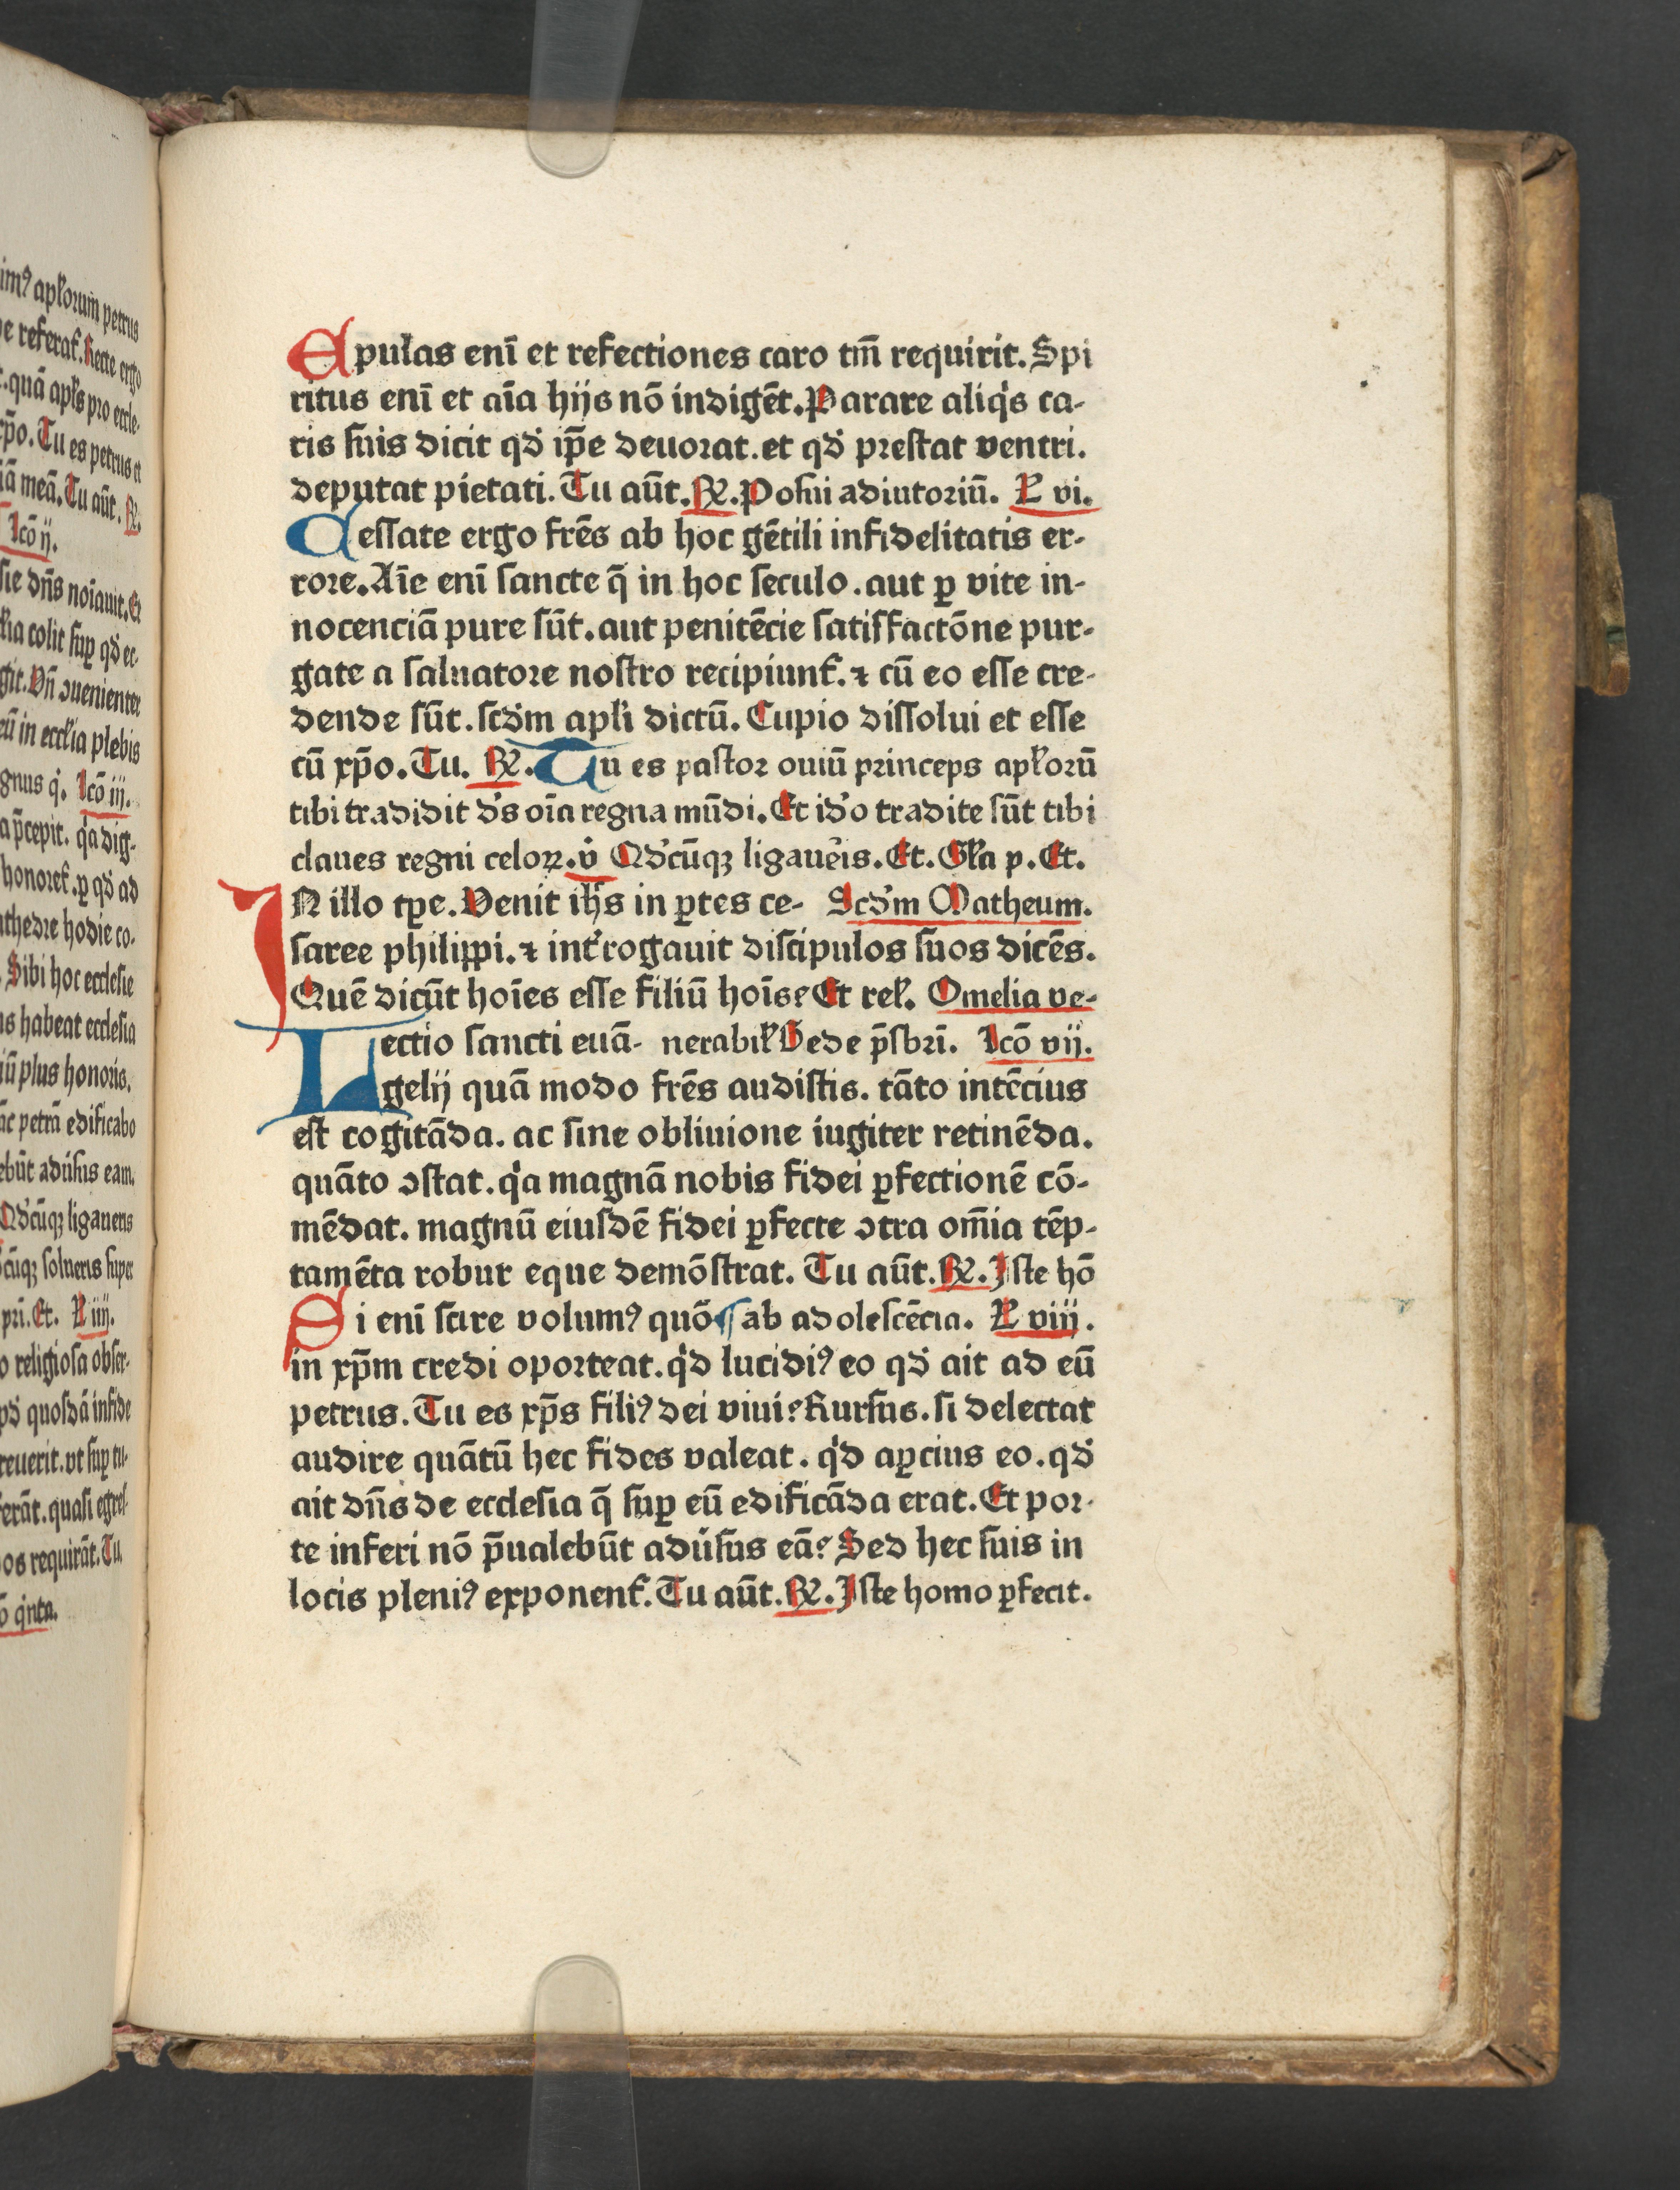 im⁹ apl̃orum petrus
e referat᷑. Recte ergo
. quā apl̃s pro eccle-
xp̄o. Tu es petrus et
iā meā. Tu aūt. ℟.
lcō ij.
sie dn̄s noīauit. Et
l̃ia colit suꝑ qd̛ ec-
git. Vn̄ ↄuenienter
eū in eccl̃ia plebis
gnus q̇. lcō iij.
a p̄cepit. qa̛ dig-
honoret᷑. ꝑ qd̛ ad
athedre hodie co-
. Sibi hoc ecclesie
ns habeat ecclesia
iū plus honoris.
āc petrā edificabo
ebūt adūsus eam.
Qd̛cūqꝫ ligaueris
cūqꝫ solueris super
pri. Et. L̵ iiij.
o religiosa obser-
qd̛ quosdā infide
reuerit. vt suꝑ tu-
ferāt. quasi egres-
os requirāt. Tu
ō qi̛nta.
Epulas enī et refectiones caro tm̄ requirit. Spi
ritus enī et aīa hijs nō indigēt. Parare aliqi̛s ca-
ris suis dicit qd̛ ip̄e deuorat. et qd̛ prestat ventri.
deputat pietati. Tu aūt. ℟. Posui adiutoriū. L̵ vi.
Cessate ergo frēs ab hoc gētili infidelitatis er-
rore. Aīe enī sancte q̄ in hoc seculo. aut ꝑ vite in-
nocenciā pure sūt. aut penitēcie satisfactōne pur-
gate a saluatore nostro recipiunt᷑. ⁊ cū eo esse cre-
dende sūt. scd̛m apl̃i dictū. Cupio dissolui et esse
cū xp̄o. Tu. ℟. Tu es pastor ouiū princeps apl̃orū
tibi tradidit d̛s oīa regna mūdi. Et id̛o tradite sūt tibi
claues regni celoꝝ. v̇ Qd̛cūqꝫ ligaue̛is. Et. Gl̃a p. Et.
IN illo tꝑe. Venit ih̄s in ꝑtes ce- Scd̛m Matheum.
saree philippi. ⁊ int̛rogauit discipulos suos dicēs.
Quē dicūt hoīes esse filiū hoīs? Et rel̃. Omelia ve-
Lectio sancti euā- nerabil̃ Bede p̄sbri̅. lcō vij.
gelij quā modo frēs audistis. tāto intēcius
est cogitāda. ac sine obliuione iugiter retinēda.
quāto ↄstat. qa̛ magnā nobis fidei ꝑfectionē cō-
mēdat. magnū eiusdē fidei ꝑfecte ↄtra om̄ia tēp-
tamēta robur eque demōstrat. Tu aūt. ℟. Iste hō
Si enī scire volum⁹ quō ¶ ab adolescēcia. L̵ viij.
in xp̄m credi oporteat. qi̛d lucidi⁹ eo qd̛ ait ad eū
petrus. Tu es xp̄s fili⁹ dei viui? Rursus. si delectat
audire quātū hec fides valeat. qi̛d aꝑcius eo. qd̛
ait dn̄s de ecclesia q̄ suꝑ eū edificāda erat. Et por-
te inferi nō p̄ualebūt adūsus eā? Sed hec suis in
locis pleni⁹ exponent᷑. Tu aūt. ℟. Iste homo ꝑfecit.